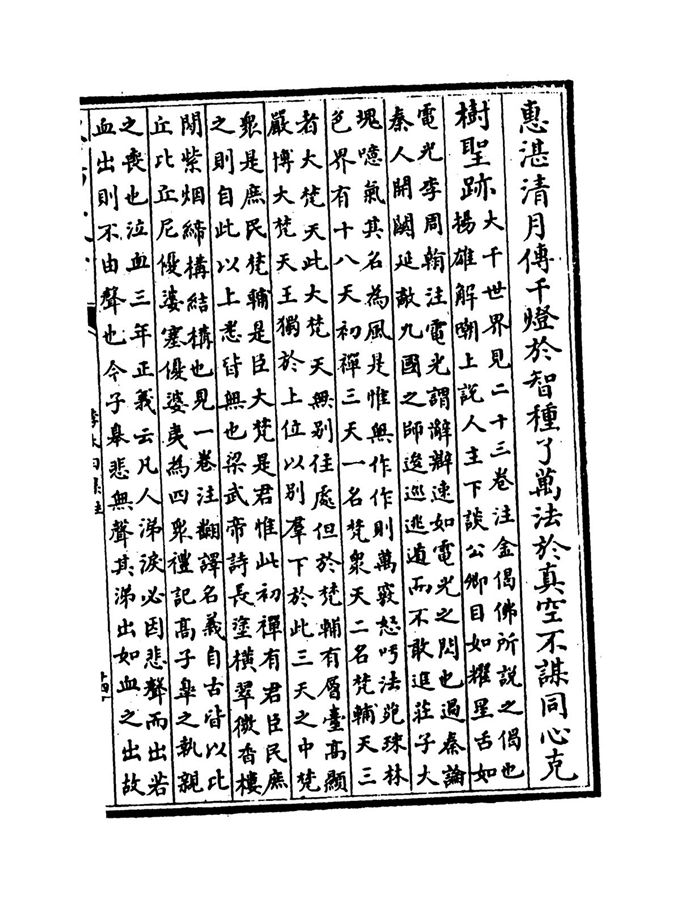 惠湛清月傳千燈於智種了萬法於真空不謀同心克
樹聖跡
大千世界見二十三卷注金偈佛所説之偈也
揚雄解嘲上説人主下談公卿目如耀星舌如
電光李周翰注電光謂辭辯速如電光之閃也過秦論
秦人開闗延敵九國之師逡巡逃遁而不敢進莊子大
塊噫氣其名為風是惟無作作則萬竅怒呺法苑珠林
色界有十八天初禪三天一名梵衆天二名梵輔天三
者大梵天此大梵天無別住處但於梵輔有層臺高顯
嚴博大梵天王獨於上位以别羣下於此三天之中梵
衆是庶民梵輔是臣大梵是君惟此初禪有君臣民庶
之則自此以上悉皆無也梁武帝詩長塗横翠微香樓
間紫烟締構結構也見一卷注翻譯名義自古皆以比
丘比丘尼優婆塞優婆夷為四衆禮記高子臯之執親
之喪也泣血三年正義云凡人涕淚必因悲聲而出若
血出則不由聲也今子臯悲無聲其涕出如血之出故